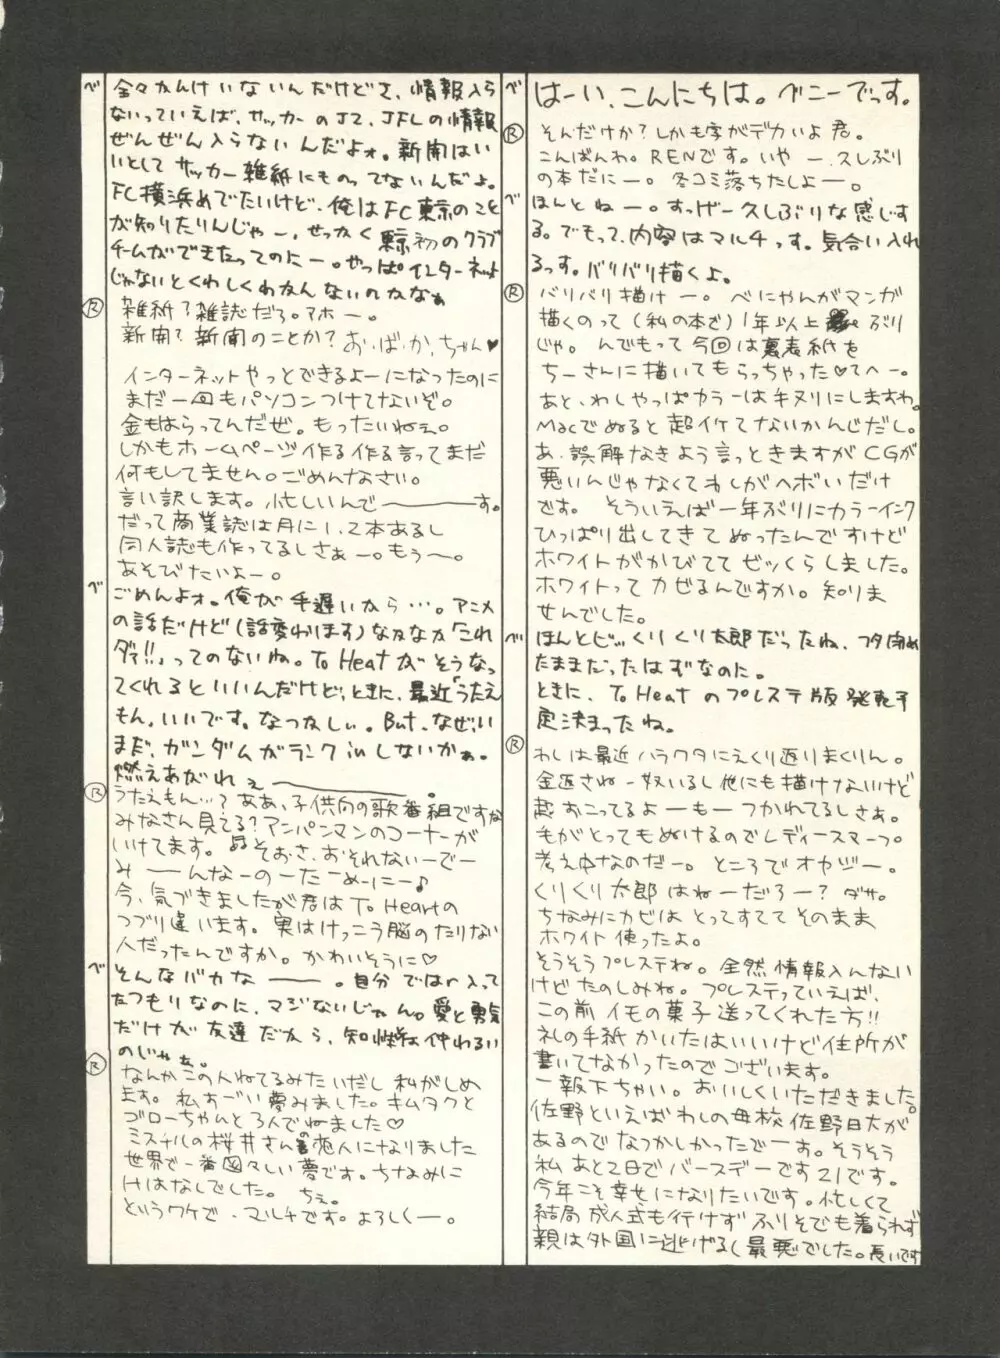 べ はーい、こんにちは。べニーでっす。
Ⓡ そんだけか?しかも字がデカいよ君。
こんばんわ。RENです。いやー、久しぶり
の本だにー。冬コミ落ちたしよー。
べ ほんとねー。すっげー久しぶりな感じす
る。でもって、内容はマルチっす。気合い入れ
るっす。バリバリ描くよ。
Ⓡ バリバリ描けー。べにやんがマンガ
描くのって(私の本で)1年以上ぶり
じゃ。んでもって今回は裏表紙を
ちーさんに描いてもらっちゃった♡てへー。
あと、わしゃっぱカラーは手ヌリにしますわ。
Macでぬると超イケてないかんじだし。
あ、誤解なきよう言っときますがCGが
悪いんじゃなくてわしがヘボいだけ
です。そういえば一年ぶりにカラーインク
ひっぱり出してきてぬったんですけど
ホワイトがかびててビックらしました。
ホワイトってカビるんですか。知りま
せんでした。
べ ほんとビックリくり太郎だったね、フタ閉め
たままだったはずなのに。
ときに、To Heatのプレステ版発売予
定決まったね。
Ⓡ わしは最近ハラワタにえくり返りまくりん。
金返さねー奴いるし他にも描けないけど
超おこってるよーもーつかれてるしさぁ。
毛がとってもぬけるのでレディースマープ。
考え中なのだー。ところでオヤジー。
くりくり太郎はねーだろー?ダサ。
ちなみにカビはとってすててそのまま
ホワイト使ったよ。
そうそうプレステね。全然情報入んない
けどたのしみね。プレステっていえば、
この前イモの菓子送ってくれた方!!
礼の手紙かいたはいいけど住所が
書いてなかったのでございます。
一報下ちゃい。おいしくいただきました。
佐野といえばわしの母校佐野日大が
あるのでなつかしかったでーす。そうそう
私あと2日でバースデーです21です。
今年こそ幸せになりたいです。忙しくて
結局成人式も行けずふりそでも着られず
親は外国に逃げるし最悪でした。長いです
べ 全々かんけいないんだけどさ、情報入ら
ないっていえば、サッカーのJ2、JFLの情報
ぜんぜん入らないんだよォ。新開はい
いとしてサッカー雑紙にものってないんだよ。
FC横浜めでたいけど、俺はFC東京のこと
が知りたりんじゃー、せっかく東京初のクラブ
チームができたってのにー。やっぱインターネット
じゃないとくわしくわかんないのかなぁ
Ⓡ 雑紙?雑誌だろ。アホー。
新開?新聞のことか?おばかちゃん♥
インターネットやっとできるよーになったのに
まだ一回もパソコンつけてないぞ。
金もはらってんだぜ。もったいねぇ。
しかもホームページ作る作る言ってまだ
何もしてません。ごめんなさい。
言い訳します。忙しいんで――――す。
だって商業誌は月に1、2本あるし
同人誌も作ってるしさぁー。もう〜。
あそびたいよー。
べ ごめんよォ。俺が手遅いから…。アニメ
の話だけど(話変わります)なかなか「これ
ダァ!!」ってのないね。To Heatがそうなっ
てくれるといいんだけど、ときに、最近「うたえ
もん」いいです。なつかしい。But、なぜ、い
まだ、ガンダムがランクinしないかぁ。
燃えあがれぇ――――。
Ⓡ うたえもん…?ああ、子供向の歌番組ですな
みなさん見てる?アンパンマンのコーナーが
いけてます。♬そおさ、おそれないーでー
みーーんなーのーたーめーにー♪
今、気づきましたが君はTo Heartの
つづり違います。実はけっこう脳のたりない
人だったんですか。かわいそうに♡
べ そんなバカなーー。自分ではr入って
たつもりなのに、マジないじゃん。愛と勇気
だけが友達だから、知性は仲わるい
のじゃぁ。
Ⓡ なんかこの人ねてるみたいだし私がしめ
ます。私すごい夢みました。キムタクと
ゴローちゃんと3人でねました♡
ミスチルの桜井さんの恋人になりました
世界で一番図々しい夢です。ちなみに
Hはなしでした。ちぇ。
というワケで、マルチです。よろしくー。